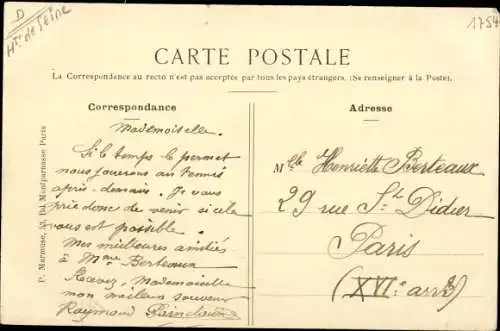 D
Hts de Seine
1754
CARTE POSTALE
La Correspondance au recto n'est pas acceptée par tous les pays étrangers. (Se renseigner à la Poste).
Correspondance
Mademoiselle.
Si le temps le permet
nous jouerons au Tennis
après-demain. Je vous
prie donc de venir si cela
vous est possible.
Mes meilleures amitiés
à Mme Berteaux
Recevez, Mademoiselle
mon meilleur souvenir
Raymond
Adresse
Mlle Henriette Berteaux
29 rue St Didier
Paris
(XVIe arrt)
P. Marmuse, 53, Bd Montparnasse Paris